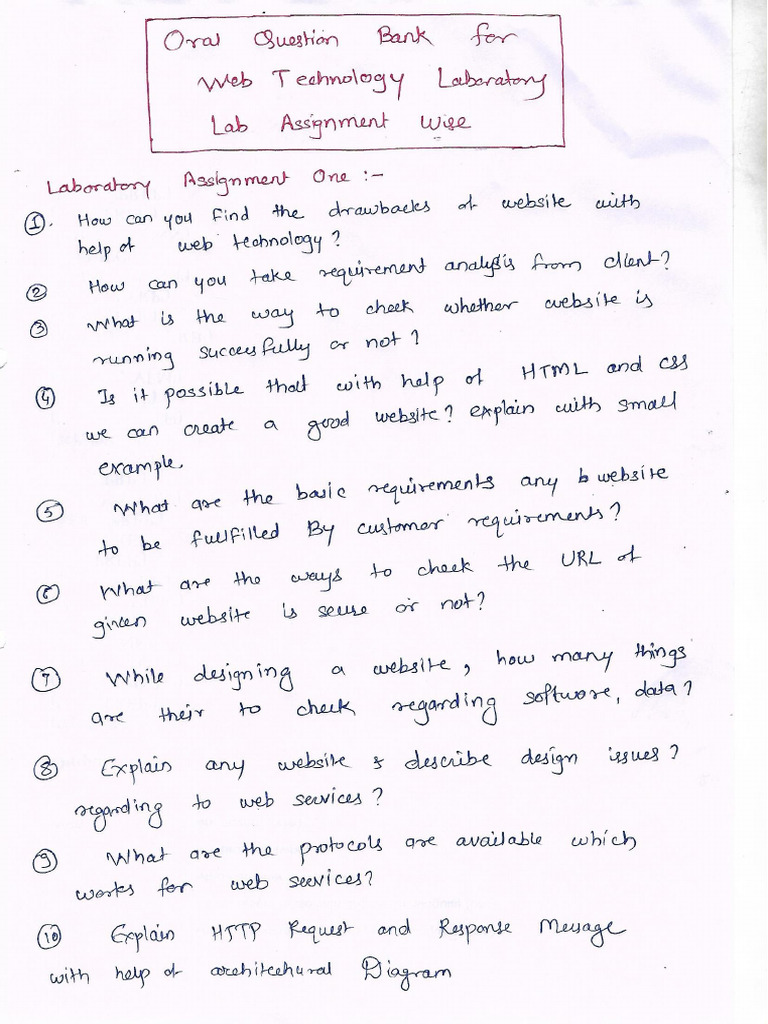 Oral Question Bank for
Web Technology Laboratory
Lab Assignment Wise
Laboratory Assignment One :-
①. How can you find the drawbacks of website with
help of web technology?
② How can you take requirement analysis from client?
③ What is the way to check whether website is
running successfully or not?
④ Is it possible that with help of HTML and CSS
we can create a good website? explain with small
example.
⑤ What are the basic requirements any b website
to be fullfilled By customer requirements?
⑥ What are the ways to check the URL of
given website is secuse or not?
⑦ While designing a website, how many things
are their to check regarding software, data?
⑧ Explain any website & describe design issues?
regarding to web services?
⑨ What are the protocols are available which
works for web services?
⑩ Explain HTTP Request and Response Message
with help of architechural Diagram